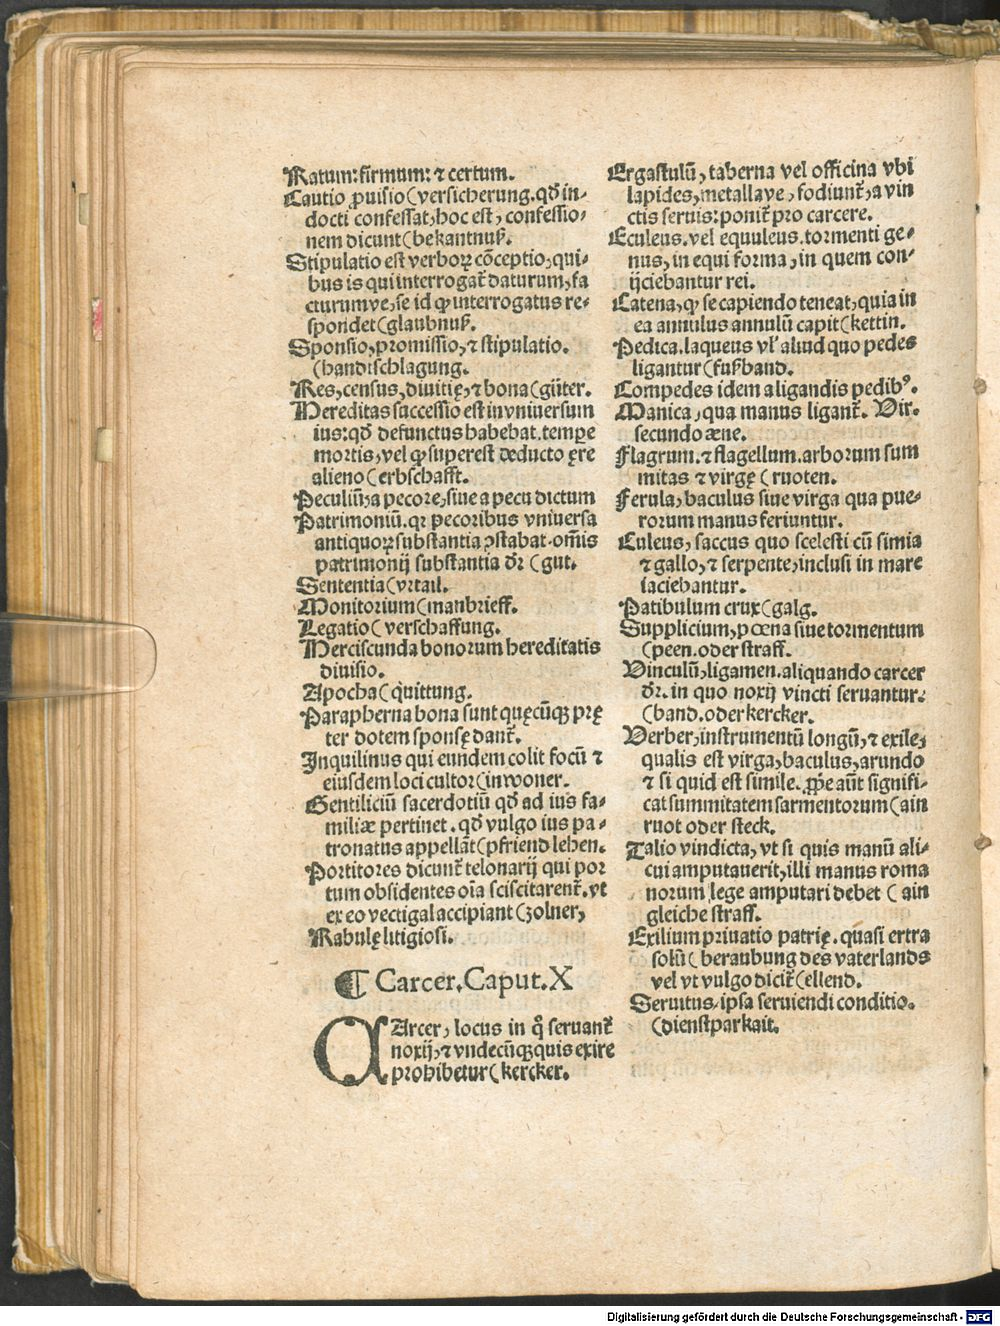 Ratum: firmum: ⁊ certum.
Cautio ꝓuisio (versicherung. qđ in⸗
docti confessat, hoc est, confessio⸗
nem dicunt (bekantnuß.
Stipulatio est verboꝝ cōceptio, qui⸗
bus is qui interrogat̄ daturum, fa
cturumve, se id ꝙ interrogatus re⸗
spondet (glaubnuß.
Sponsio, promissio, ⁊ stipulatio.
(handtschlagung.
Res, census, divitię, ⁊ bona (güter.
Hereditas successio est in vniuersum
ius: qđ defunctus habebat. tempe
mortis, vel ꝙ superest deducto ęre
alieno (erbschafft.
Peculiū, a pecore, siue a pecu dictum
Patrimoniū. qꝛ pecoribus vniuersa
antiquoꝝ substantia ꝯstabat. om̄is
patrimonij substantia dꝛ (gut.
Sententia (vrtail.
Monitorium (manbrieff.
Legatio (verschaffung.
Herciscunda bonorum hereditatis
diuisio.
Apocha (quittung.
Parapherna bona sunt quęcūqꝫ prę
ter dotem sponsę dant̄.
Inquilinus qui eundem colit focū ⁊
eiusdem loci cultor (inwoner.
Gentiliciū sacerdotiū qđ ad ius fa⸗
miliæ pertinet. qđ vulgo ius pa⸗
tronatus appellāt (pfriend lehen.
Portitores dicunt̄ telonarij qui por
tum obsidentes oīa sciscitarent̄. vt
ex eo vectigal accipiant (zolner,
Rabulę litigiosi.
¶ Carcer. Caput. X
CArcer, locus in q̊ seruant̄
noxij, ⁊ vndecūqꝫ quis exire
prohibetur (kercker.
Ergastulū, taberna vel officina vbi
lapides, metallave, fodiunt̄, a vin
ctis seruis: ponit̄ pro carcere.
Eculeus. vel equuleus. tormenti ge⸗
nus, in equi forma, in quem con⸗
ijciebantur rei.
Catena, ꝙ se capiendo teneat, quia in
ea annulus annulū capit (kettin.
Pedica. laqueus vl' aliud quo pedes
ligantur (fußband.
Compedes idem a ligandis pedibꝰ.
Manica, qua manus ligant̄. Vir.
secundo æne.
Flagrum. ⁊ flagellum. arborum sum
mitas ⁊ virgę (ruoten.
Ferula, baculus siue virga qua pue⸗
rorum manus feriuntur.
Culeus, saccus quo scelesti cū simia
⁊ gallo, ⁊ serpente, inclusi in mare
iaciebantur.
Patibulum crux (galg.
Supplicium, pœna siue tormentum
(peen. oder straff.
Vinculū, ligamen. aliquando carcer
dꝛ. in quo noxij vincti seruantur.
(band. oder kercker.
Verber, instrumentū longū, ⁊ exile,
qualis est virga, baculus, arundo
⁊ si quid est simile. ꝓpͥe aūt signifi⸗
cat summitatem sarmentorum (ain
ruot oder steck.
Talio vindicta, vt si quis manū ali⸗
cui amputauerit, illi manus roma
norum lege amputari debet (ain
gleiche straff.
Exilium priuatio patrię. quasi extra
solū (beraubung des vaterlands
vel vt vulgo dicit̄ (ellend.
Seruitus, ipsa seruiendi conditio.
(dienstparkait.
Digitalisierung gefördert durch die Deutsche Forschungsgemeinschaft - DFG